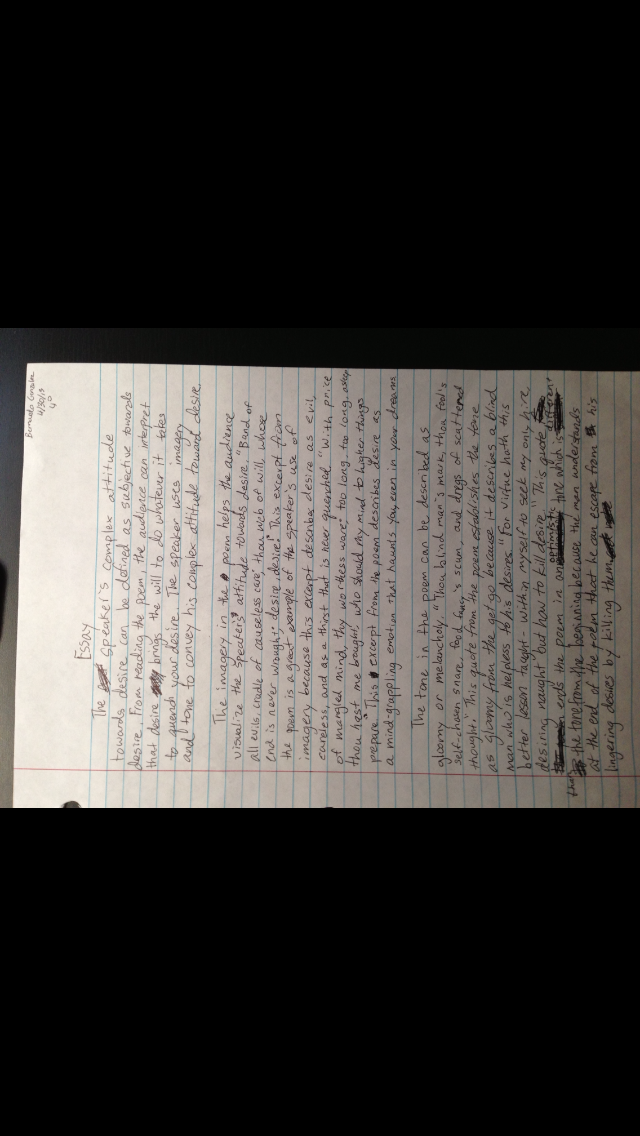 4/30/15
4°
Essay
The speaker's complex attitude
towards desire can be defined as subjective towards
desire. From reading the poem, the audience can interpret
that desire brings the will to do whatever it takes
to quench your desire. The speaker uses imagery
and tone to convey his complex attitude toward desire.
The imagery in the poem helps the audience
visualize the speaker's attitude towards desire. "Band of
all evils, cradle of causeless care, thou web of will, whose
end is never wrought: desire, desire!" This excerpt from
the poem is a great example of the speaker's use of
imagery because this excerpt describes desire as evil,
careless, and as a thirst that is never quenched. "With price
of mangled mind, thy worthless ware, too long, too long, asleep
thou hast me brought, who should my mind to higher things
prepare." This excerpt from the poem describes desire as
a mind-grappling emotion that haunts you even in your dreams
The tone in the poem can be described as
gloomy or melancholy. "Thou blind man's mark, thou fool's
self-chosen snare, fond scum, and dregs of scattered
thought." This quote from the poem establishes the tone
as gloomy from the get-go because it describes a blind
man who is helpless to his desires. "For virtue hath this
better lesson taught - within myself to seek my only hire,
desiring naught but how to kill desire." This quote
ends the poem in an optimistic tone which is different
than the tone from the beginning because the man understands
at the end of the poem that he can escape from his
lingering desires by killing them